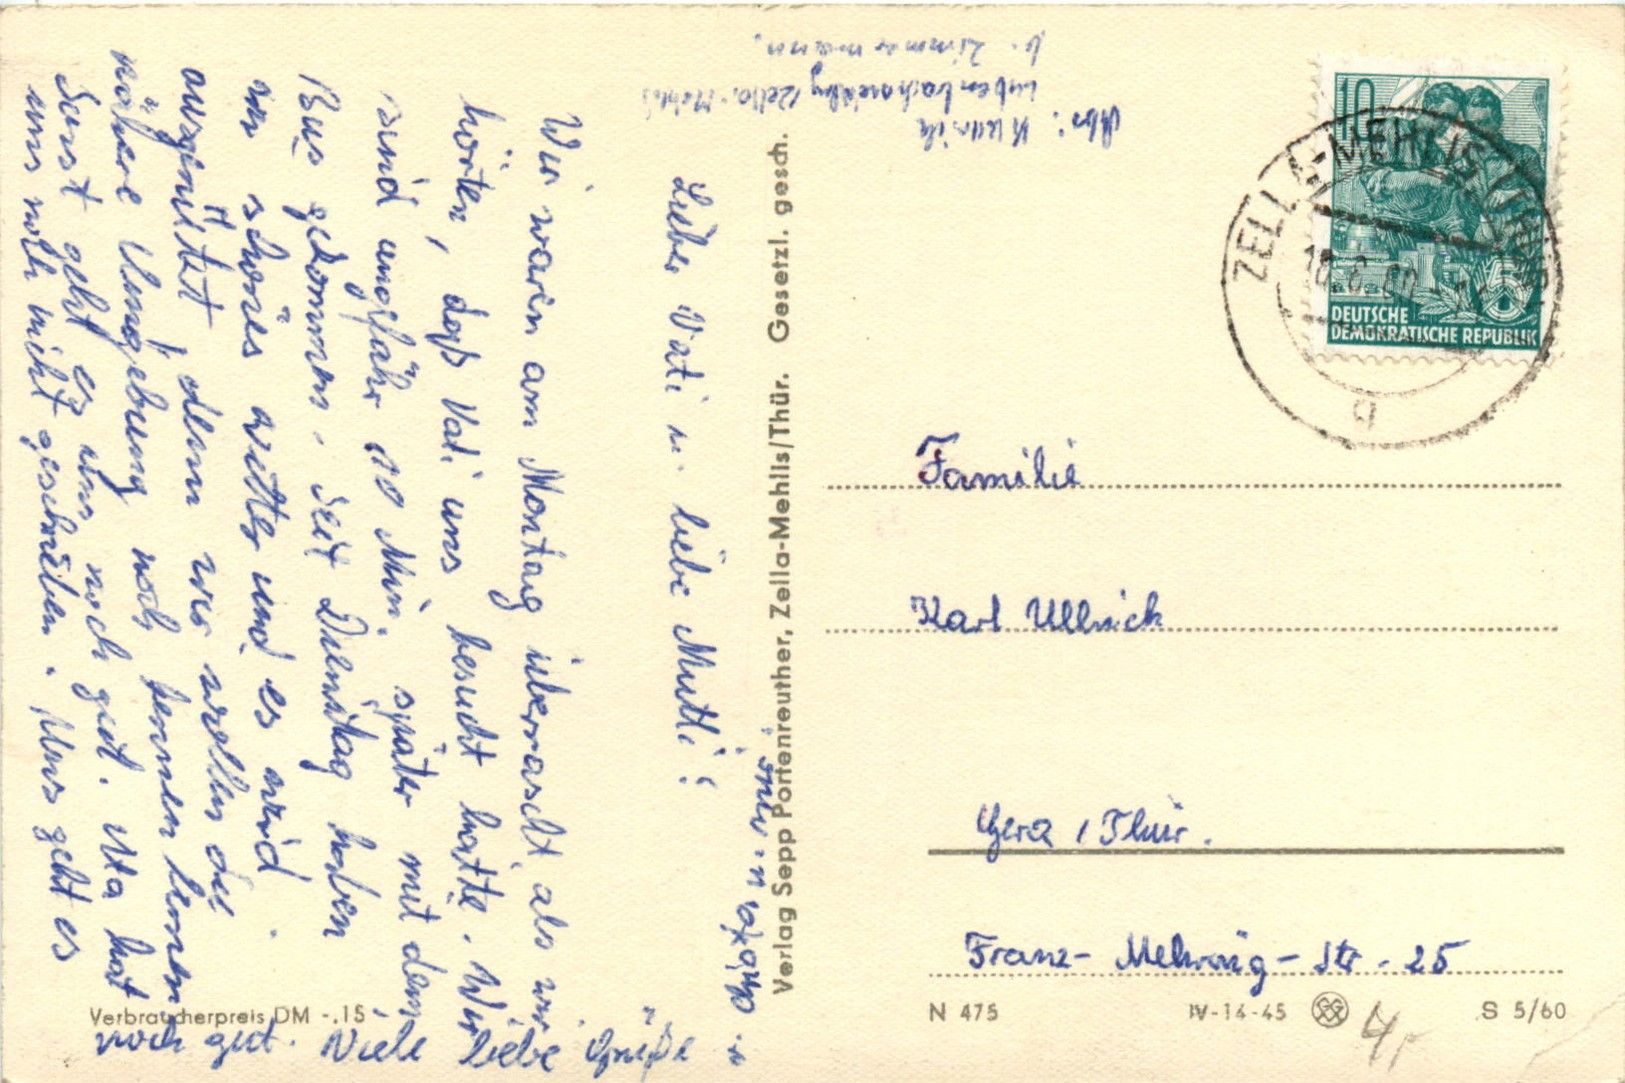 Abs: 
Lubenbachmühle, Zella-Mehlis
b. Zimmermann.
Lieber Vati u. liebe Mutti!
Wir waren am Montag überrascht als wir
hörten, daß Vati uns besucht hatte. Wir
sind ungefähr 10 Min. später mit dem
Bus gekommen. Seit Dienstag haben
wir schönes Wetter und es wird
ausgenützt, denn wir wollen die
nähere Umgebung noch kennen lernen
Sonst geht es uns noch gut. Uta hat
uns noch nicht geschrieben. Uns geht es
noch gut. Viele liebe Grüße
Verbraucherpreis DM -.15
Verlag Sepp Portenreuther, Zella-Mehlis/Thür. Gesetzl. gesch.
10
DEUTSCHE
DEMOKRATISCHE REPUBLIK
ZELLA-MEHLIS (THÜR)
Familie
Karl Ullrich
Gera / Thür.
Franz-Mehring-Str. 25
N 475 IV-14-45 S 5/60